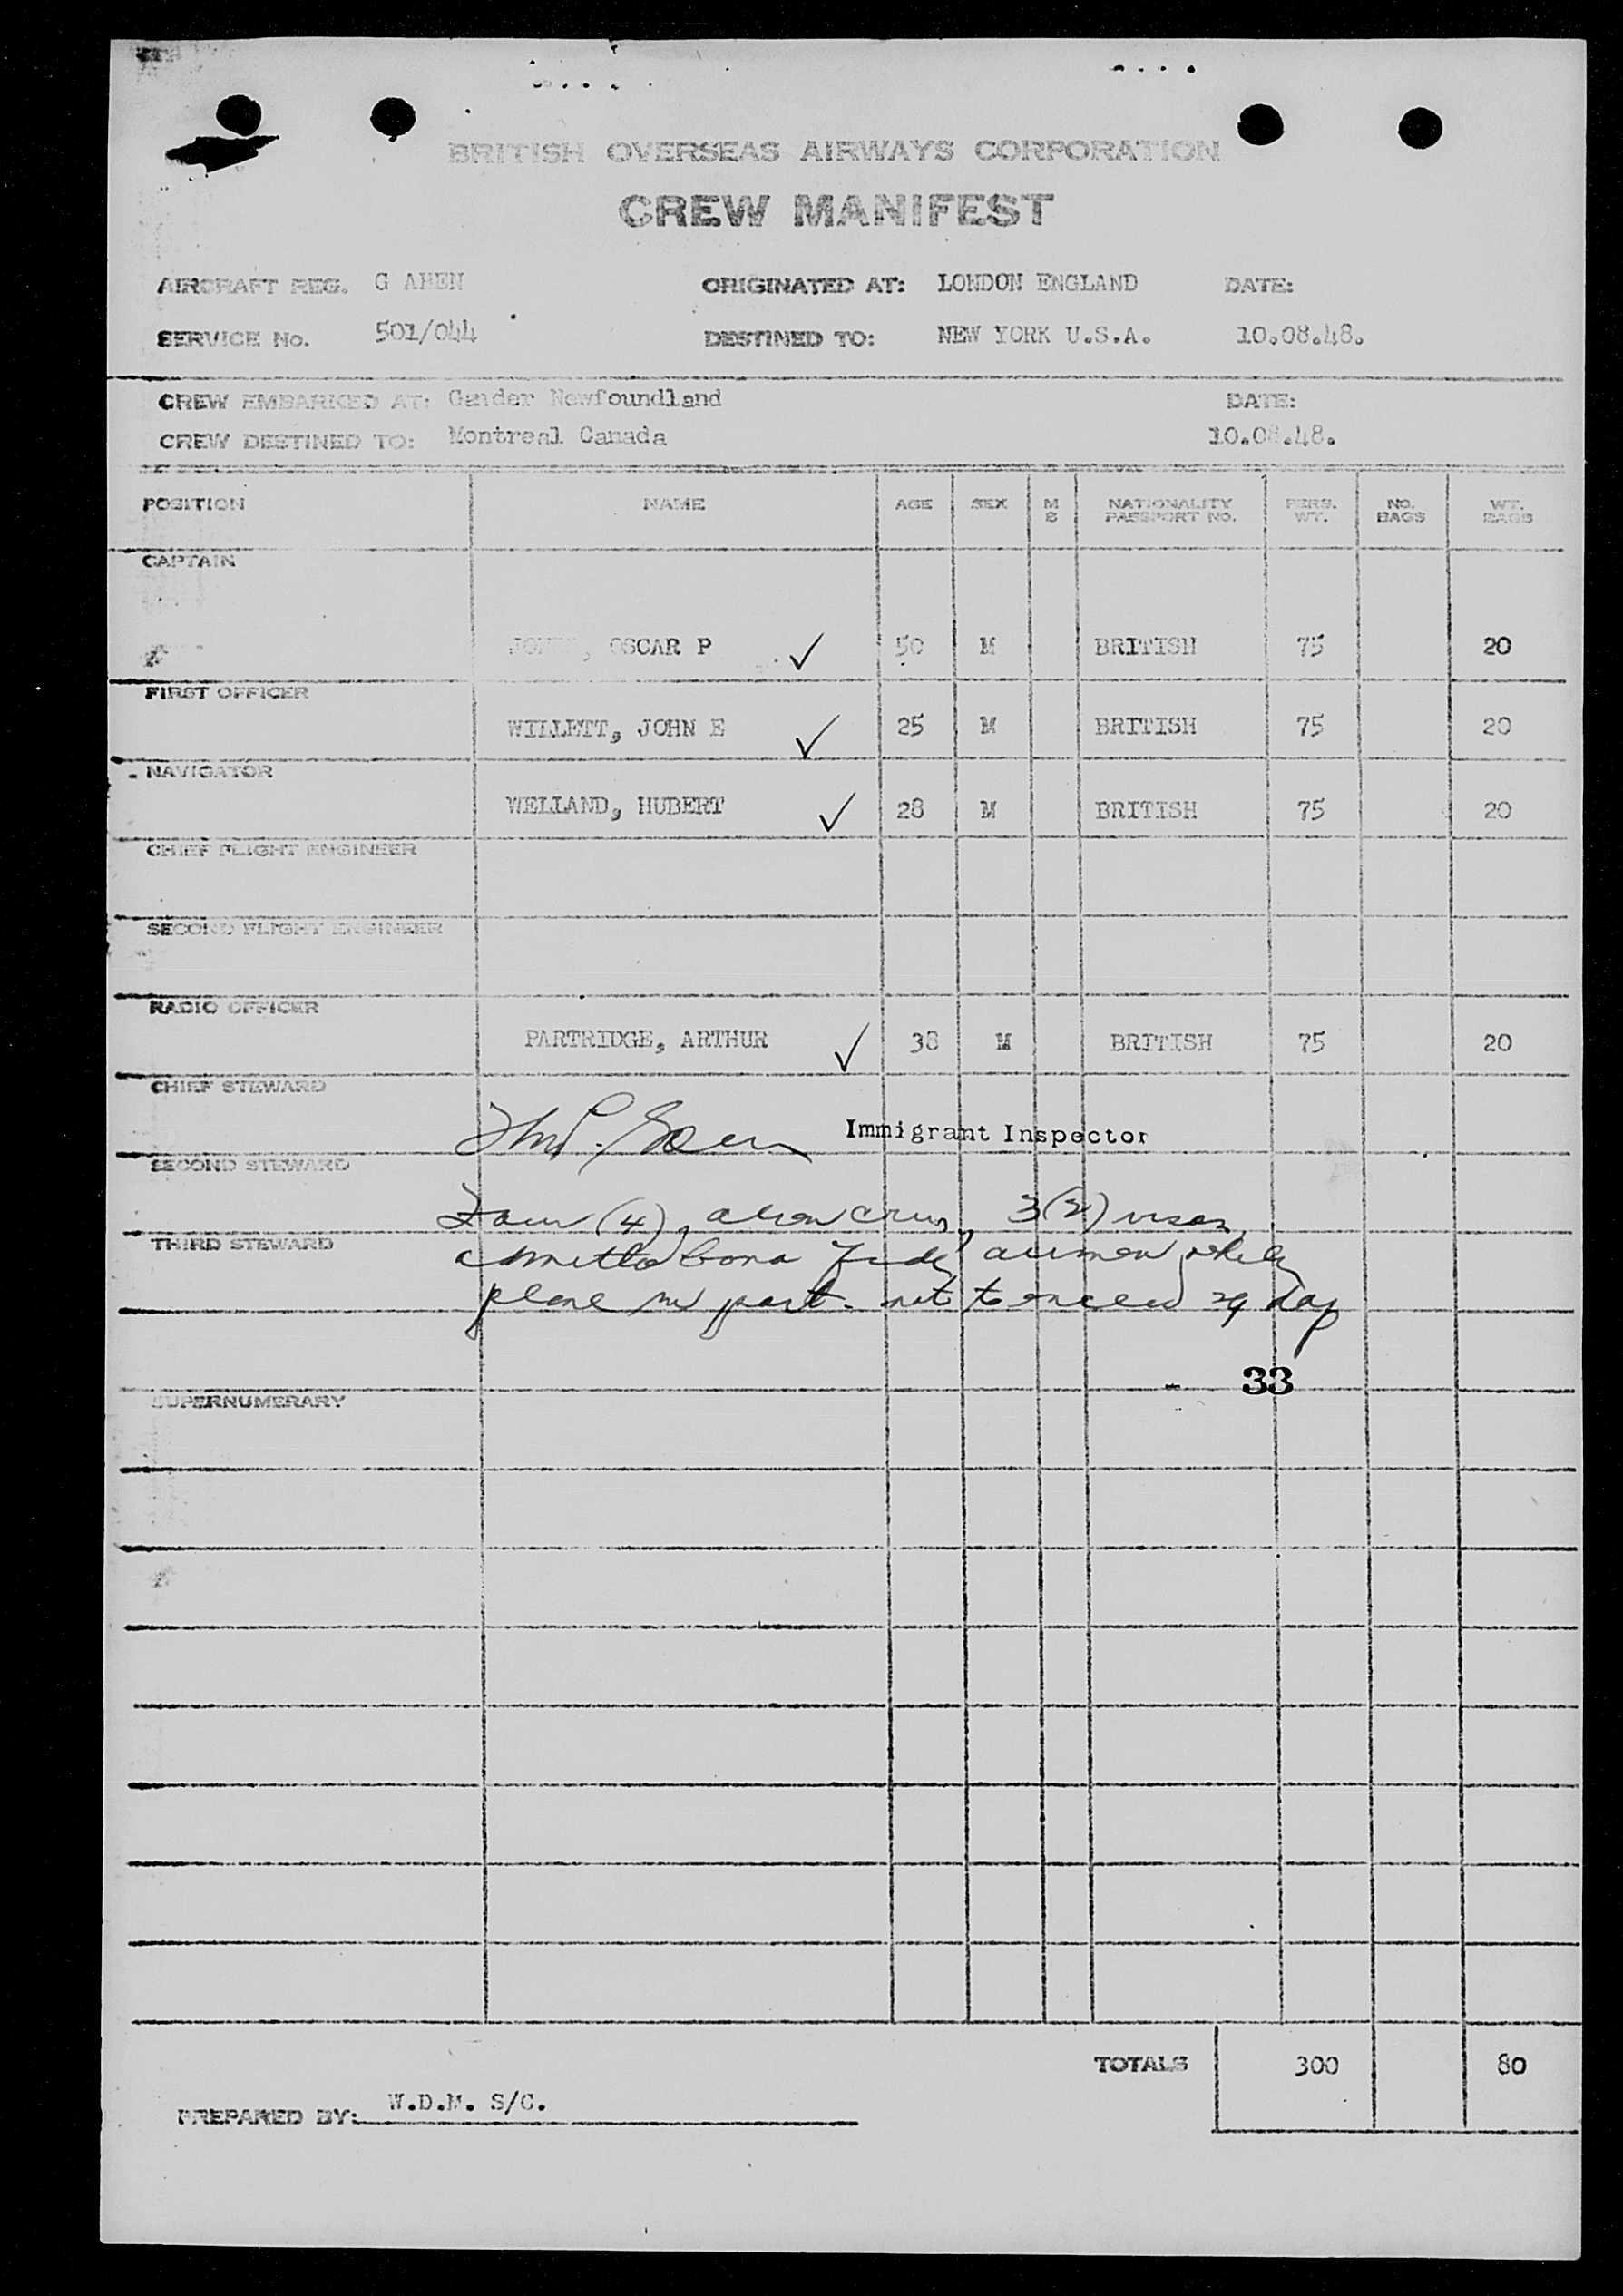 BRITISH OVERSEAS AIRWAYS CORPORATION
CREW MANIFEST
AIRCRAFT REG. G AHEN ORIGINATED AT: LONDON ENGLAND DATE:
SERVICE No. 501/044 DESTINED TO: NEW YORK U.S.A. 10.08.48.
CREW EMBARKED AT: Gander Newfoundland DATE:
CREW DESTINED TO: Montreal Canada 10.08.48.
POSITION NAME AGE SEX M S NATIONALITY PASSPORT NO. PERS. WT. NO. BAGS WT. BAGS
CAPTAIN
OSCAR P ✓ 50 M BRITISH 75 20
FIRST OFFICER
WILLETT, JOHN E ✓ 25 M BRITISH 75 20
NAVIGATOR
WELLAND, HUBERT ✓ 28 M BRITISH 75 20
CHIEF FLIGHT ENGINEER
SECOND FLIGHT ENGINEER
RADIO OFFICER
PARTRIDGE, ARTHUR ✓ 38 M BRITISH 75 20
CHIEF STEWARD
Immigrant Inspector
SECOND STEWARD
Four (4) alien crew, 3(2) visas
THIRD STEWARD
bona fide airmen while
plane in port. not to exceed 29 days
33
SUPERNUMERARY
TOTALS 300 80
PREPARED BY: W.D.M. S/C.